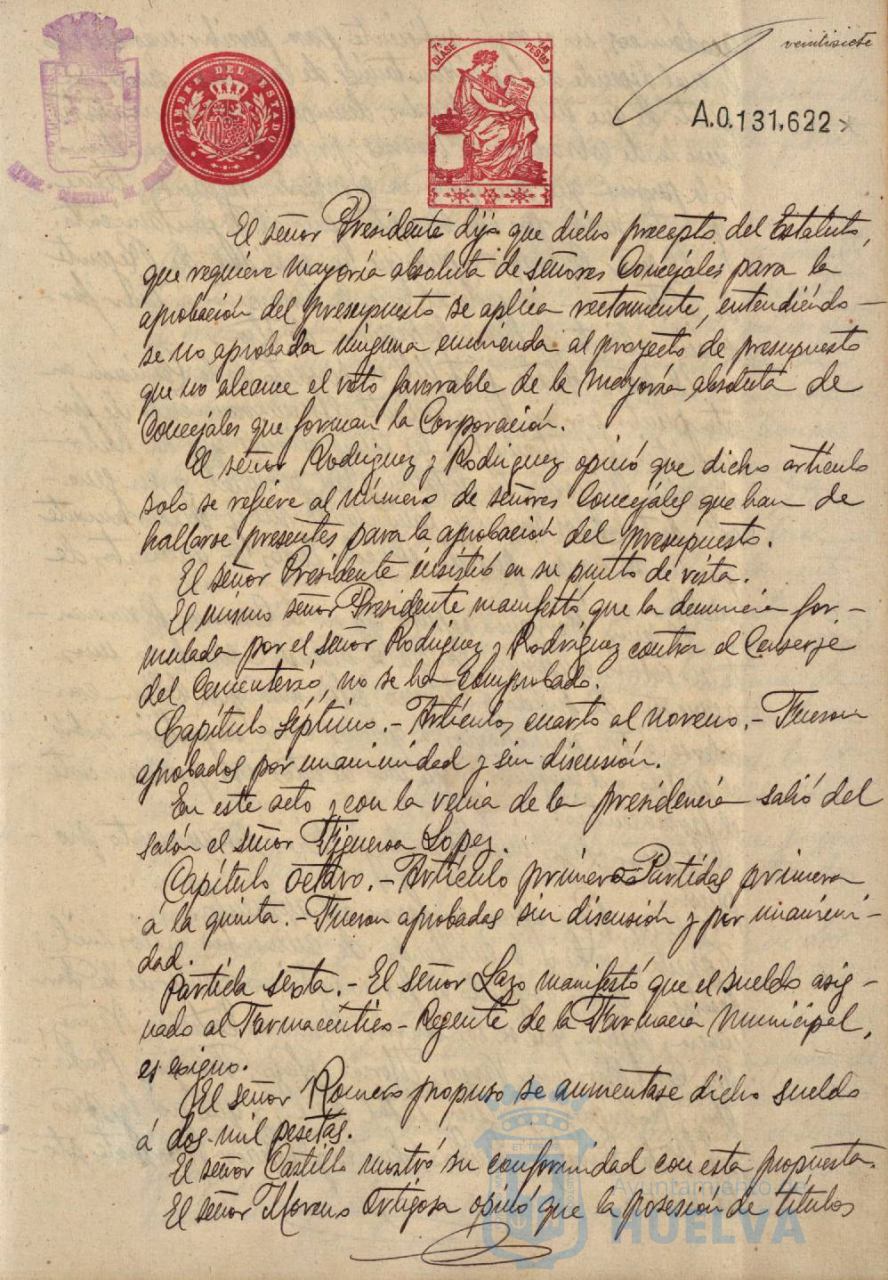 veintisiete
A.0.131,622
TIMBRE DEL ESTADO
7ª CLASE
PESETAS
El señor Presidente dijo que dicho precepto del Estatuto,
que requiere mayoría absoluta de señores Concejales para la
aprobación del presupuesto se aplica rectamente, entendiéndo-
se no aprobada ninguna enmienda al proyecto de presupuesto
que no alcance el voto favorable de la mayoría absoluta de
Concejales que forman la Corporación.
El señor Rodriguez y Rodriguez opinó que dicho artículo
solo se refiere al número de señores Concejales que han de
hallarse presentes para la aprobación del presupuesto.
El señor Presidente insistió en su punto de vista.
El mismo señor Presidente manifestó que la denuncia for-
mulada por el señor Rodriguez y Rodriguez contra el Conserje
del Cementerio, no se ha comprobado.
Capítulo séptimo.- Artículos cuarto al noveno.- Fueron
aprobados por unanimidad y sin discusión.
En este acto y con la venia de la presidencia salió del
salón el señor Figueroa Lopez.
Capítulo octavo.- Artículo primero Partidas primera
á la quinta.- Fueron aprobadas sin discusión y por unanimi-
dad.
Partida sexta.- El señor Lazo manifestó que el sueldo asig-
nado al Farmaceútico-Regente de la Farmacia Municipal,
es exiguo.
El señor Romero propuso se aumentase dicho sueldo
á dos mil pesetas.
El señor Castilla mostró su conformidad con esta propuesta.
El señor Moreno Ortigosa opinó que la posesión de títulos
Ayuntamiento de
HUELVA